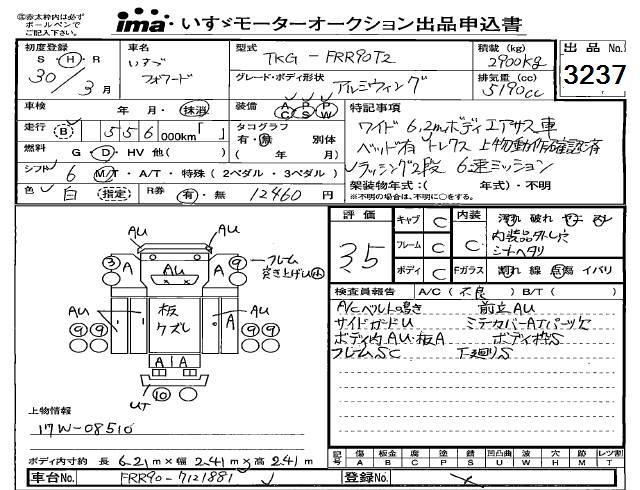 ※赤太枠内は必ず
ボールペンで
ご記入下さい。
ima いすゞモーターオークション出品申込書
初度登録 車名 型式 積載(kg) 出品No.
S H R いすゞ TKG-FRR90T2 2900kg
30/3月 フォワード グレード・ボディ形状 アルミウィング 排気量(cc) 5190cc 3237
車検 年・月・抹消 装備 AC PS PW 特記事項
走行(B) 556 000km「 」 タコグラフ 有・無 別体 ( 年 月)
燃料 G・D・HV 他( )
シフト 6 M/T・A/T・特殊(2ペダル・3ペダル)
色 白 (指定) R券 有・無 12460円
ワイド 6.2mボディエアサス車
ベッド有 リトレクス 上物動作確認済
ラッシング2段 6速ミッション
架装物年式:( 年式)・不明
※不明の場合は、不明に○をする。
評価 3.5
キャブ C
フレーム C
ボディ C
内装 C 汚れ 破れ ヤニ
内装品外し穴
シートヘタリ
Fガラス 割れ 線 点傷 イバリ
検査員報告 A/C(不良) B/T( )
A/Cベルト鳴き 前立AU
サイドガードU ミテカバーATパーツ欠
ボディ内AU・板A ボディ枠S
フレームSC 下廻りS
AU AU
③ A AU A ⑨
フレーム
突き上げU小
AU 板ケズレ A AU
⑨⑨ ⑨⑨
A A
UT ⑩
上物情報
17W-08510
ボディ内寸約 長 6.21m×幅 2.41m×高 2.41m
記号 傷 A 板金 B 腐 C 塗 P 錆 S 凹凸曲 U 波 W 穴 H 跡 M レツ割 T
車台No. FRR90-7121881 登録No.